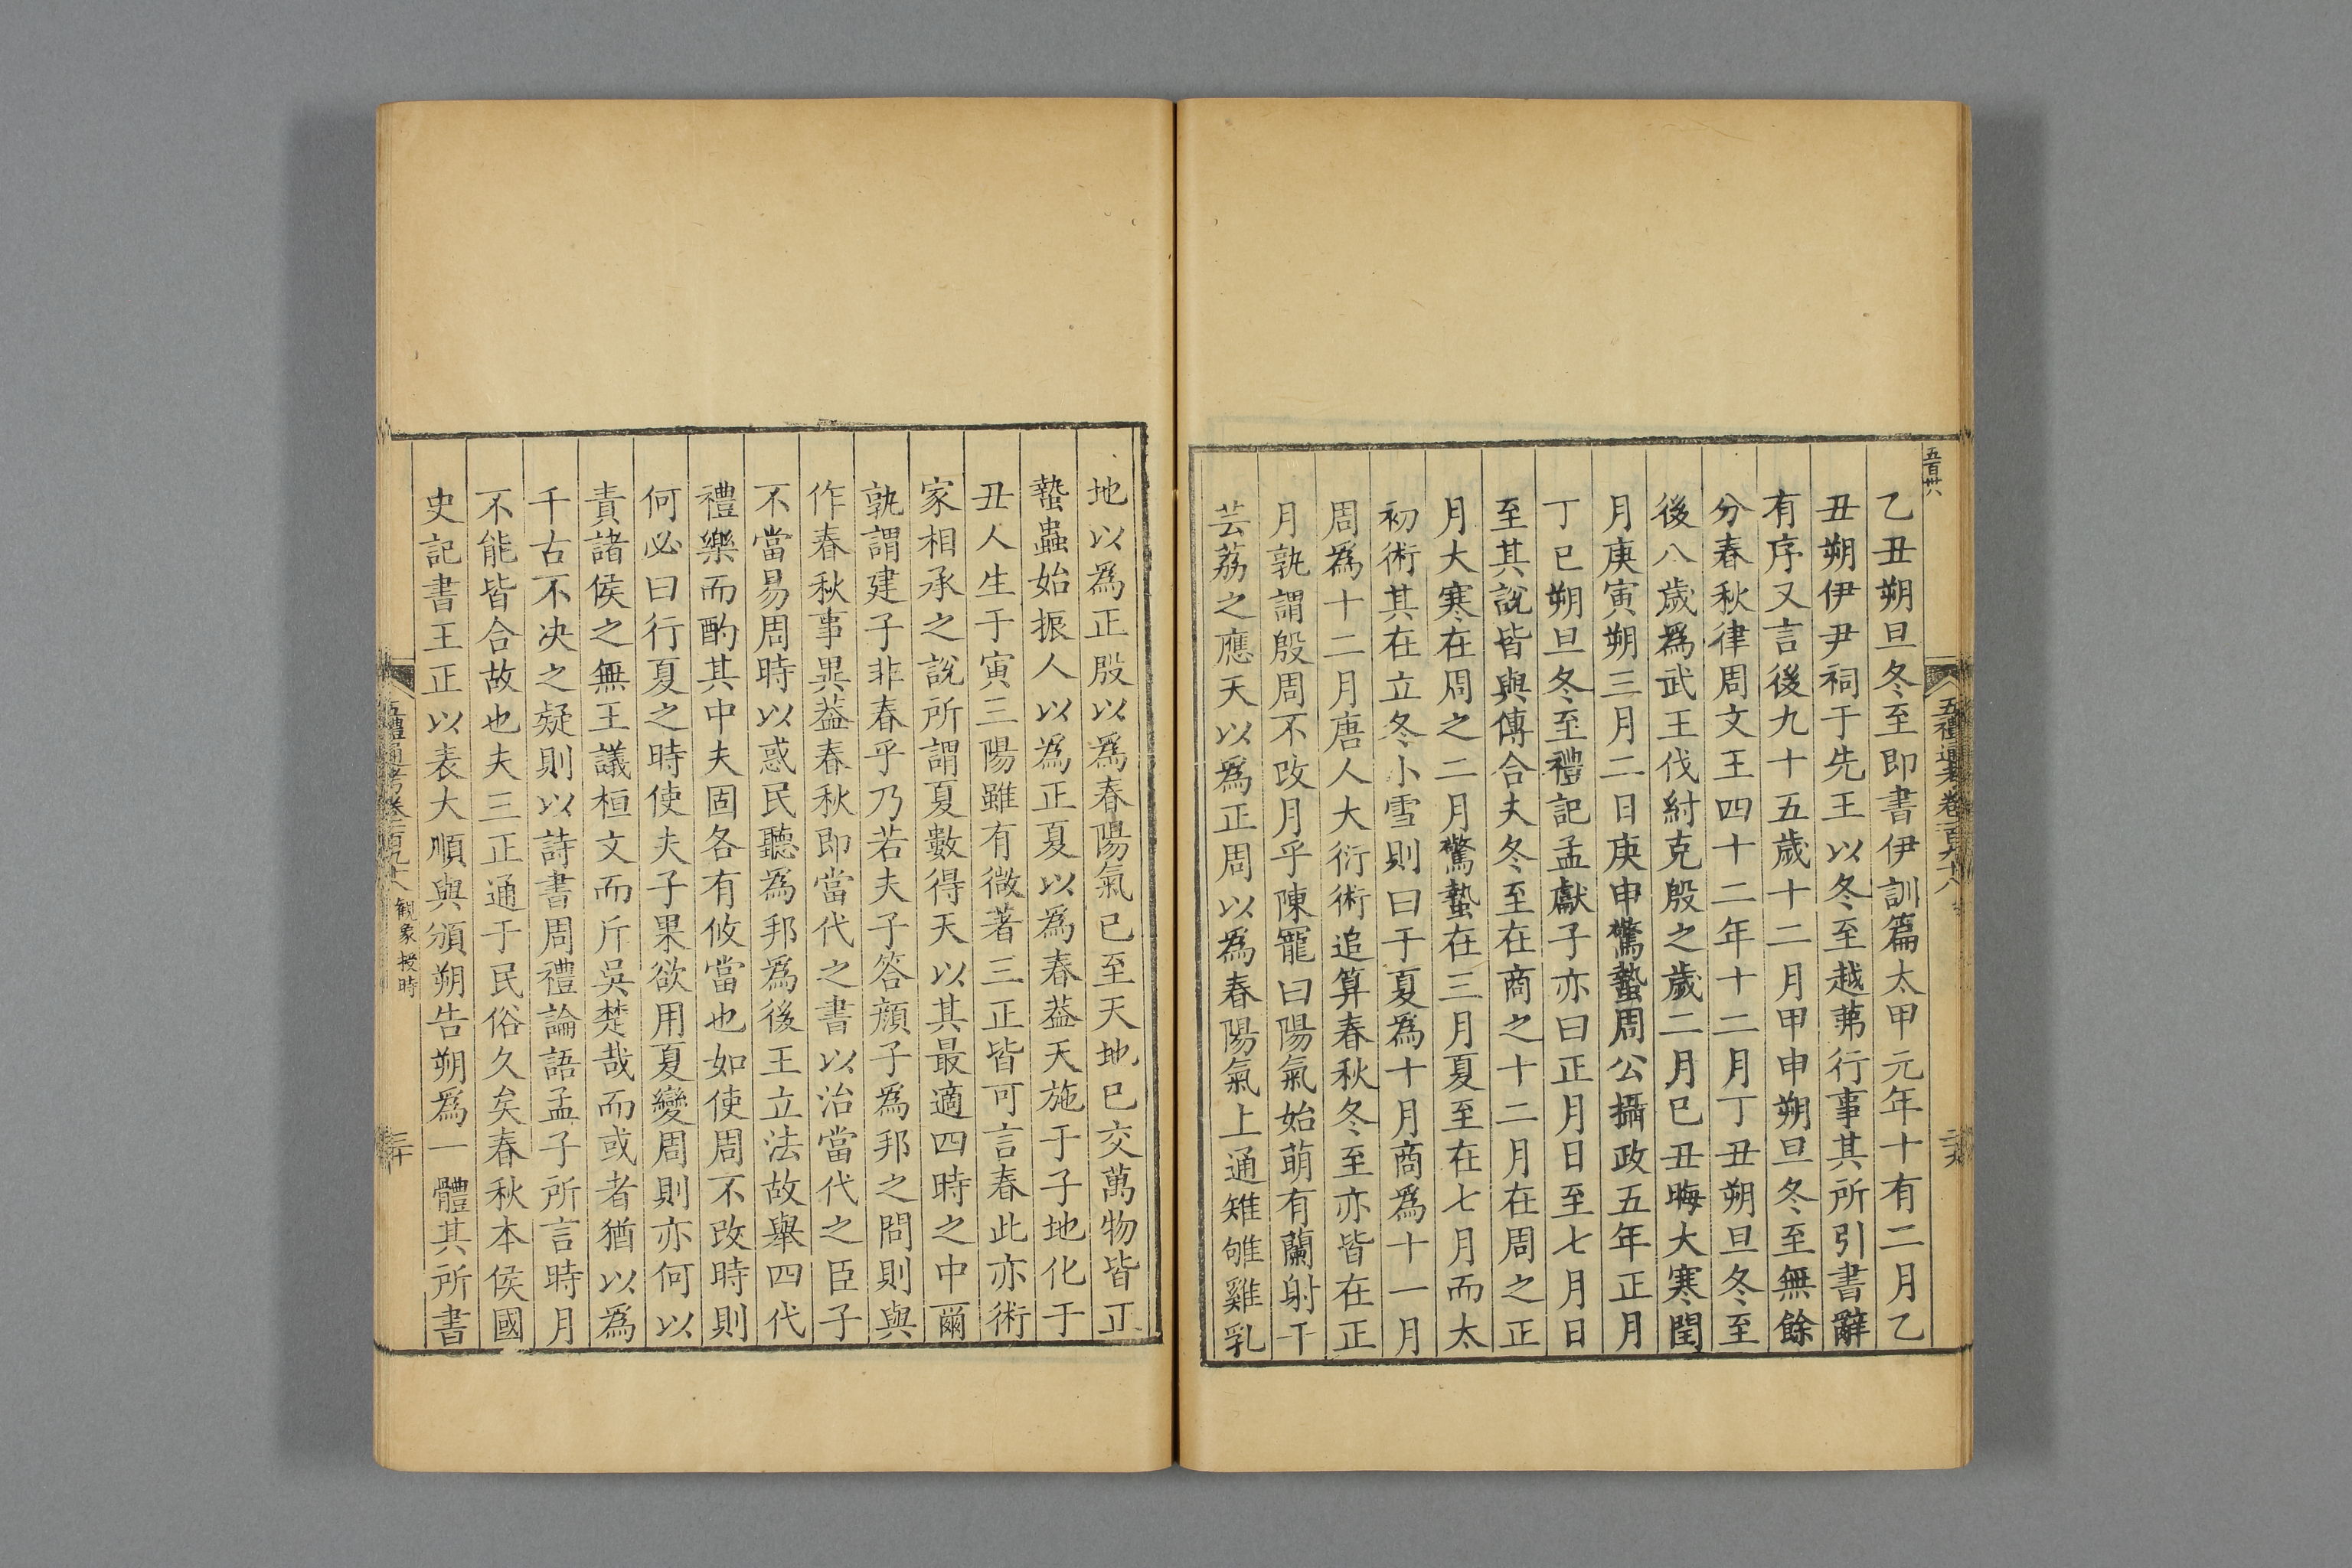 五百卅六
五禮通考卷一百九十八
乙丑朔旦冬至即書伊訓篇太甲元年十有二月乙
丑朔伊尹祠于先王以冬至越茀行事其所引書辭
有序又言後九十五歲十二月甲申朔旦冬至無餘
分春秋律周文王四十二年十二月丁丑朔旦冬至
後八歲爲武王伐紂克殷之歲二月己丑晦大寒閏
月庚寅朔三月二日庚申驚蟄周公攝政五年正月
丁巳朔旦冬至禮記孟獻子亦曰正月日至七月日
至其說皆與傳合夫冬至在商之十二月在周之正
月大寒在周之二月驚蟄在三月夏至在七月而太
初術其在立冬小雪則曰于夏爲十月商爲十一月
周爲十二月唐人大衍術追算春秋冬至亦皆在正
月孰謂殷周不改月乎陳寵曰陽氣始萌有蘭射干
芸荔之應天以爲正周以爲春陽氣上通雉雊雞乳
地以爲正殷以爲春陽氣已至天地已交萬物皆正
蟄蟲始振人以爲正夏以爲春蓋天施于子地化于
丑人生于寅三陽雖有微著三正皆可言春此亦術
家相承之說所謂夏數得天以其最適四時之中爾
孰謂建子非春乎乃若夫子答顔子爲邦之問則與
作春秋事異葢春秋即當代之書以治當代之臣子
不當易周時以惑民聽爲邦爲後王立法故舉四代
禮樂而酌其中夫固各有攸當也如使周不改時則
何必曰行夏之時使夫子果欲用夏變周則亦何以
責諸侯之無王議桓文而斥吳楚哉而或者猶以爲
千古不决之疑則以詩書周禮論語孟子所言時月
不能皆合故也夫三正通于民俗久矣春秋本侯國
史記書王正以表大順與頒朔告朔爲一體其所書
五禮通考卷一百九十八 觀象授時 三十